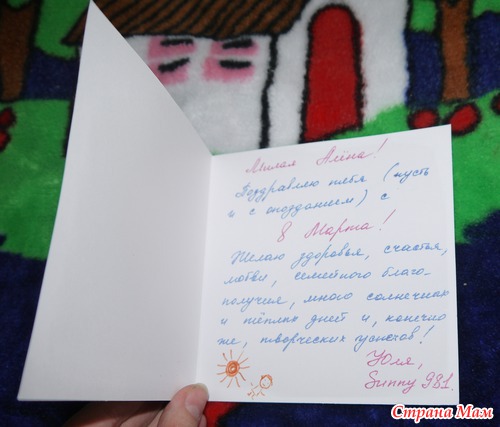 Милая Алёна!
Поздравляю тебя (пусть
и с опозданием) с
8 Марта!
Желаю здоровья, счастья,
любви, семейного благо-
получия, много солнечных
и тёплых дней и, конечно
же, творческих успехов!
Юля,
Sunny 981.
Страна Мам